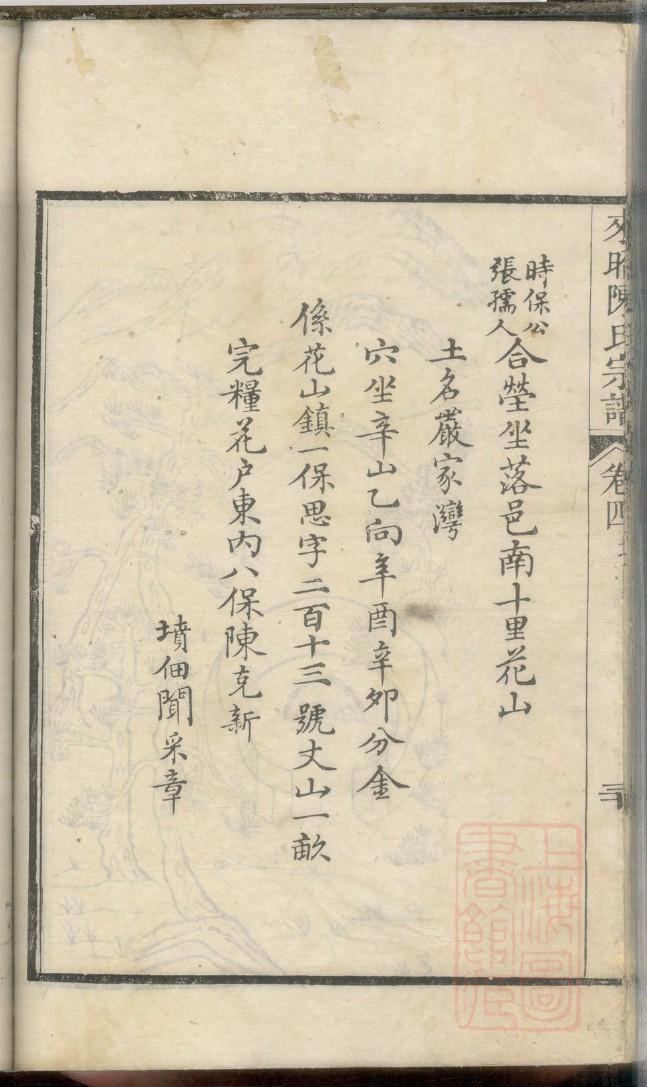 陳氏宗譜
卷四
時保公
張孺人
合塋坐落邑南十里花山
土名嚴家灣
穴坐辛山乙向辛酉辛卯分金
係花山鎮一保思字二百十三號丈山一畝
完糧花户東内八保陳克新
墳佃聞采章
上海圖
書館藏